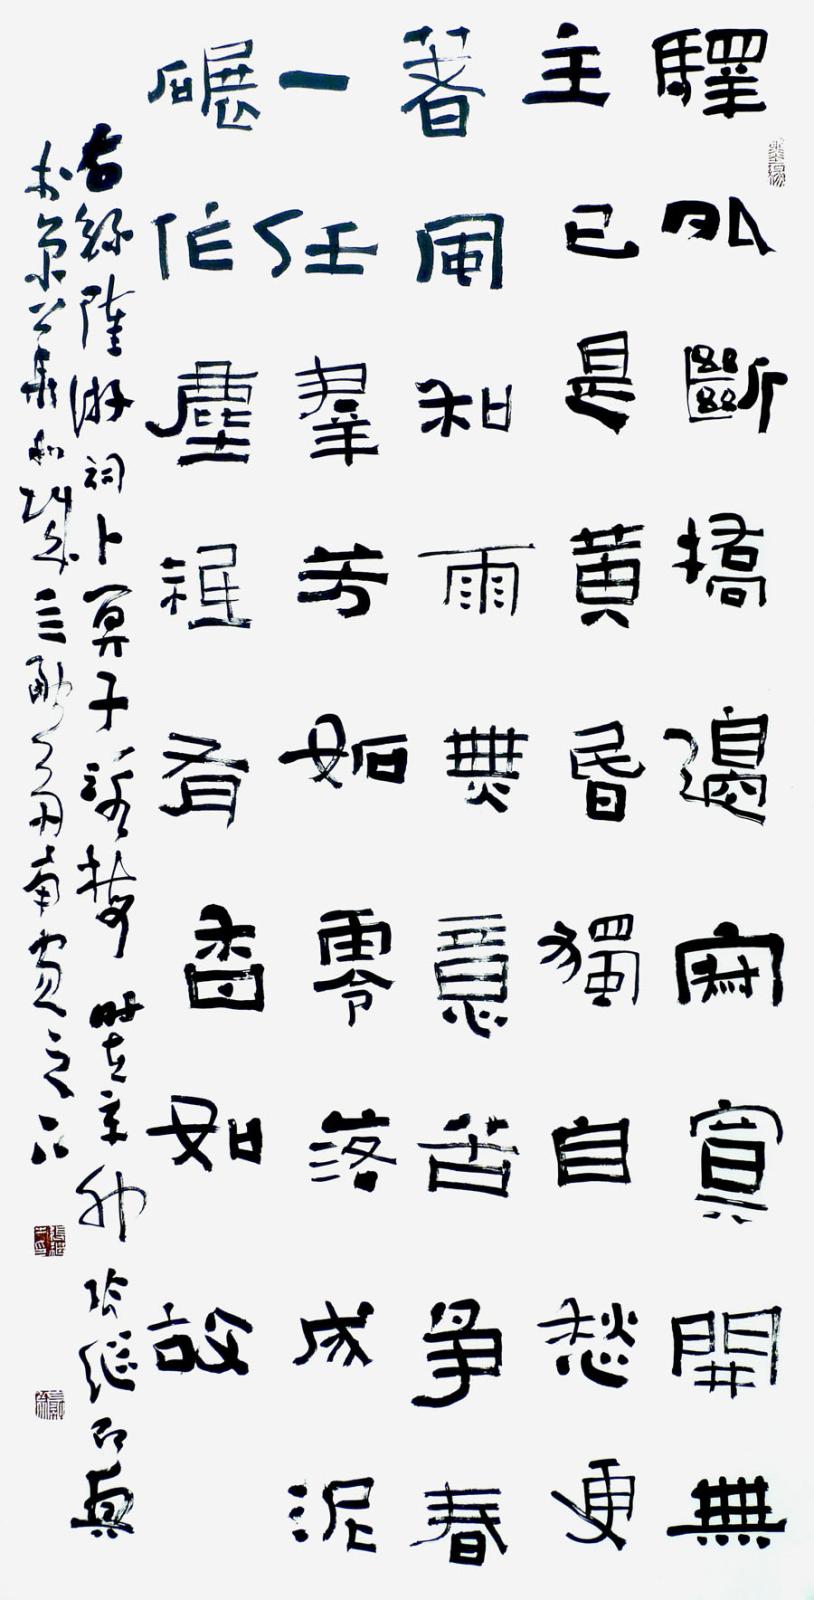 驛外斷橋邊寂寞開無
主已是黃昏獨自愁更
著風和雨無意苦爭春
一任羣芳妬零落成泥
碾作塵有香如故
右錄陸游詞卜算子詠梅時在辛卯繼
於京南窗之下